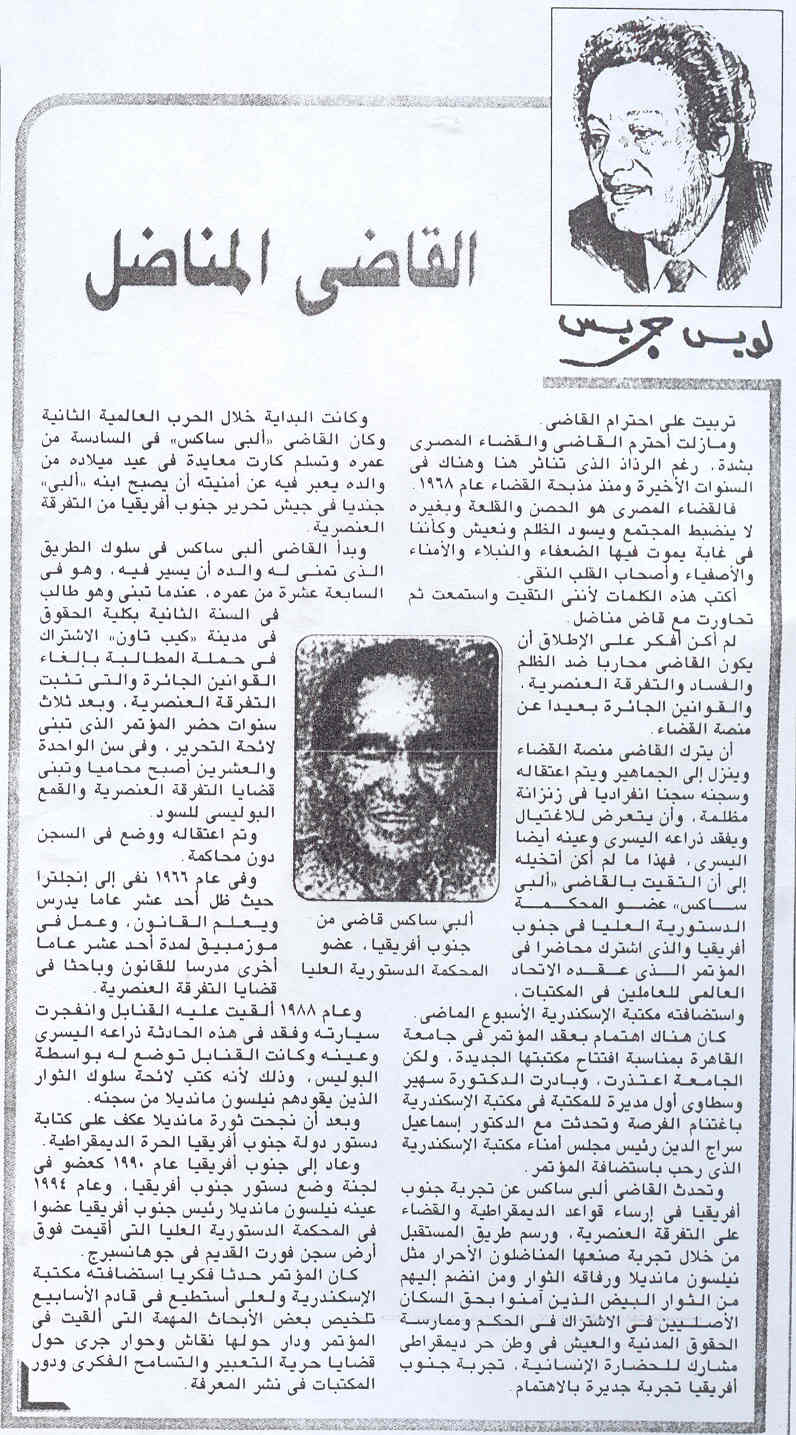 القاضى المناضل
لويس جريس
تربيت على احترام القاضى.
ومازلت أحترم القاضى والقضاء المصرى
بشدة، رغم الرذاذ الذى تناثر هنا وهناك فى
السنوات الأخيرة ومنذ مذبحة القضاء عام ١٩٦٨.
فالقضاء المصرى هو الحصن والقلعة وبغيره
لا ينضبط المجتمع ويسود الظلم ونعيش وكأننا
فى غابة يموت فيها الضعفاء والنبلاء والأمناء
والأصفياء وأصحاب القلب النقى.
أكتب هذه الكلمات لأننى التقيت واستمعت ثم
تحاورت مع قاض مناضل.
لم أكن أفكر على الإطلاق أن
يكون القاضى محاربا ضد الظلم
والفساد والتفرقة العنصرية،
والقوانين الجائرة بعيدا عن
منصة القضاء.
أن يترك القاضى منصة القضاء
وينزل إلى الجماهير ويتم اعتقاله
وسجنه سجنا انفراديا فى زنزانة
مظلمة، وأن يتعرض للاغتيال
ويفقد ذراعه اليسرى وعينه أيضا
اليسرى، فهذا ما لم أكن أتخيله
إلى أن التقيت بالقاضى «ألبى
ساكس» عضو المحكمة
الدستورية العليا فى جنوب
أفريقيا والذى اشترك محاضرا فى
المؤتمر الذى عقده الاتحاد
العالمى للعاملين فى المكتبات،
واستضافته مكتبة الإسكندرية الأسبوع الماضى.
كان هناك اهتمام بعقد المؤتمر فى جامعة
القاهرة بمناسبة افتتاح مكتبتها الجديدة، ولكن
الجامعة اعتذرت، وبادرت الدكتورة سهير
وسطاوى أول مديرة للمكتبة فى مكتبة الإسكندرية
باغتنام الفرصة وتحدثت مع الدكتور إسماعيل
سراج الدين رئيس مجلس أمناء مكتبة الإسكندرية
الذى رحب باستضافة المؤتمر.
وتحدث القاضى ألبى ساكس عن تجربة جنوب
أفريقيا فى إرساء قواعد الديمقراطية والقضاء
على التفرقة العنصرية، ورسم طريق المستقبل
من خلال تجربة صنعها المناضلون الأحرار مثل
نيلسون مانديلا ورفاقه الثوار ومن انضم إليهم
من الثوار البيض الذين آمنوا بحق السكان
الأصليين فى الاشتراك فى الحكم وممارسة
الحقوق المدنية والعيش فى وطن حر ديمقراطى
مشارك للحضارة الإنسانية، تجربة جنوب
أفريقيا تجربة جديرة بالاهتمام.
وكانت البداية خلال الحرب العالمية الثانية
وكان القاضى «ألبى ساكس» فى السادسة من
عمره وتسلم كارت معايدة فى عيد ميلاده من
والده يعبر فيه عن أمنيته أن يصبح ابنه «ألبى»
جنديا فى جيش تحرير جنوب أفريقيا من التفرقة
العنصرية.
وبدأ القاضى ألبى ساكس فى سلوك الطريق
الذى تمنى له والده أن يسير فيه، وهو فى
السابعة عشرة من عمره، عندما تبنى وهو طالب
فى السنة الثانية بكلية الحقوق
فى مدينة «كيب تاون» الاشتراك
فى حملة المطالبة بإلغاء
القوانين الجائرة والتى تثبت
التفرقة العنصرية، وبعد ثلاث
سنوات حضر المؤتمر الذى تبنى
لائحة التحرير، وفى سن الواحدة
والعشرين أصبح محاميا وتبنى
قضايا التفرقة العنصرية والقمع
البوليسى للسود.
وتم اعتقاله ووضع فى السجن
دون محاكمة.
وفى عام ١٩٦٦ نفى إلى إنجلترا
حيث ظل أحد عشر عاما يدرس
ويعلم القانون، وعمل فى
موزمبيق لمدة أحد عشر عاما
أخرى مدرسا للقانون وباحثا فى
قضايا التفرقة العنصرية.
وعام ١٩٨٨ ألقيت عليه القنابل وانفجرت
سيارته وفقد فى هذه الحادثة ذراعه اليسرى
وعينه وكانت القنابل توضع له بواسطة
البوليس، وذلك لأنه كتب لائحة سلوك الثوار
الذين يقودهم نيلسون مانديلا من سجنه.
وبعد أن نجحت ثورة مانديلا عكف على كتابة
دستور دولة جنوب أفريقيا الحرة الديمقراطية.
وعاد إلى جنوب أفريقيا عام ١٩٩٠ كعضو فى
لجنة وضع دستور جنوب أفريقيا، وعام ١٩٩٤
عينه نيلسون مانديلا رئيس جنوب أفريقيا عضوا
فى المحكمة الدستورية العليا التى أقيمت فوق
أرض سجن فورت القديم فى جوهانسبرج.
كان المؤتمر حدثا فكريا استضافته مكتبة
الإسكندرية ولعلى أستطيع فى قادم الأسابيع
تلخيص بعض الأبحاث المهمة التى ألقيت فى
المؤتمر ودار حولها نقاش وحوار جرى حول
قضايا حرية التعبير والتسامح الفكرى ودور
المكتبات فى نشر المعرفة.
ألبي ساكس قاضى من
جنوب أفريقيا، عضو
المحكمة الدستورية العليا